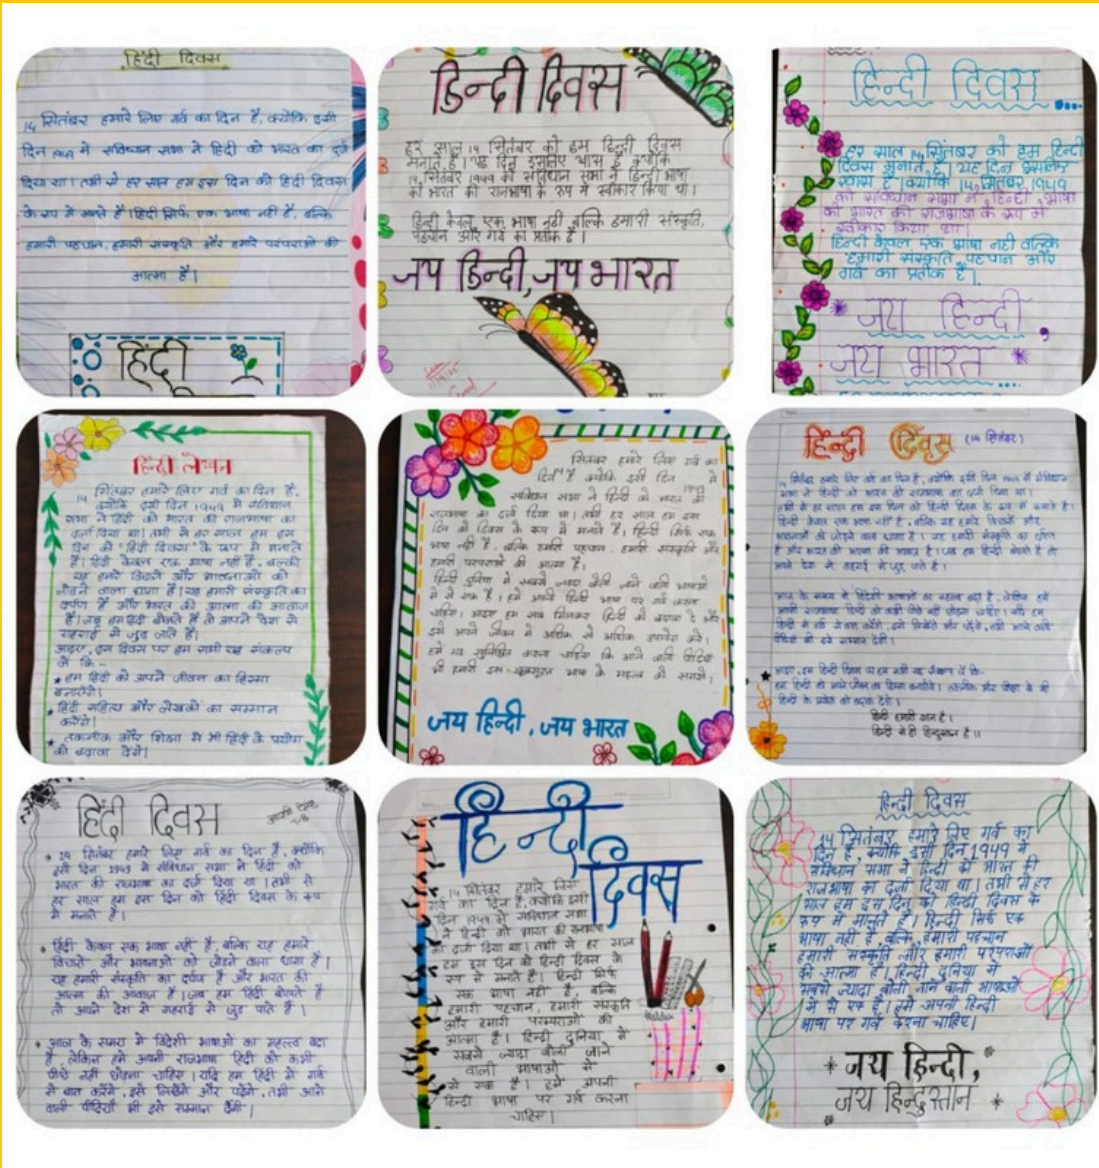 हिंदी दिवस
14 सितंबर हमारे लिए गर्व का दिन है, क्योंकि इसी
दिन 1949 में संविधान सभा ने हिंदी को भारत का दर्जा
दिया था। तभी से हर साल हम इस दिन को हिंदी दिवस
के रूप में मनाते हैं। हिंदी सिर्फ एक भाषा नहीं है, बल्कि
हमारी पहचान, हमारी संस्कृति और हमारे परंपराओं की
आत्मा है।
हिंदी
हिन्दी दिवस
हर साल 14 सितंबर को हम हिन्दी दिवस
मनाते हैं। यह दिन इसलिए खास है क्योंकि
14 सितंबर 1949 को संविधान सभा ने हिन्दी भाषा
को भारत की राजभाषा के रूप में स्वीकार किया था।
हिन्दी केवल एक भाषा नहीं बल्कि हमारी संस्कृति,
पहचान और गर्व का प्रतीक है।
जय हिन्दी, जय भारत
Good
हिन्दी दिवस
हर साल 14 सितंबर को हम हिन्दी
दिवस मनाते हैं। यह दिन इसलिए
खास है क्योंकि 14 सितंबर 1949
को संविधान सभा ने हिन्दी भाषा
को भारत की राजभाषा के रूप में
स्वीकार किया था।
हिन्दी केवल एक भाषा नहीं बल्कि
हमारी संस्कृति पहचान और
गर्व का प्रतीक है।
जय हिन्दी,
जय भारत
हिन्दी लेखन
14 सितंबर हमारे लिए गर्व का दिन है,
क्योंकि इसी दिन 1949 में संविधान
सभा ने हिंदी को भारत की राजभाषा का
दर्जा दिया था। तभी से हर साल हम इस
दिन को "हिंदी दिवस" के रूप में मनाते
हैं। हिंदी केवल एक भाषा नहीं है, बल्की
यह हमारे विचारों और भावनाओं को
जोड़ने वाला धागा है। यह हमारी संस्कृति का
दर्पण है और भारत की आत्मा की आवाज
है। जब हम हिंदी बोलते हैं तो अपने देश से
गहराई से जुड़ जाते हैं।
आइए, इस दिवस पर हम सभी यह संकल्प
लें कि -
★ हम हिंदी को अपने जीवन का हिस्सा
बनाएंगे।
★ हिंदी साहित्य और लेखकों का सम्मान
करेंगे।
★ तकनीक और शिक्षा में भी हिंदी के प्रयोग
को बढ़ावा देंगे।
सितंबर हमारे लिए गर्व का
दिन है क्योंकि इसी दिन में
संविधान सभा ने हिन्दी को भारत की 1949
राजभाषा का दर्जा दिया था। तभी हर साल हम इस
दिन को दिवस के रूप में मनाते हैं। हिन्दी सिर्फ एक
भाषा नहीं है, बल्कि हमारी पहचान, हमारी संस्कृति और
हमारी परंपराओं की आत्मा है।
हिन्दी दुनिया में सबसे ज्यादा बोली जाने वाली भाषाओं
में से एक है। हमें अपनी हिन्दी भाषा पर गर्व करना
चाहिए। आइए हम सब मिलकर हिन्दी को बढ़ावा दें और
इसे अपने जीवन में अधिक से अधिक उपयोग करें।
हमें यह सुनिश्चित करना चाहिए कि आने वाली पीढ़ियां
भी हमारी इस खूबसूरत भाषा के महत्व को समझें।
जय हिन्दी, जय भारत
हिन्दी दिवस (14 सितंबर)
14 सितंबर हमारे लिए गर्व का दिन है, क्योंकि इसी दिन 1949 में संविधान
सभा ने हिंदी को भारत की राजभाषा का दर्जा दिया था।
तभी से हर साल हम इस दिन को हिन्दी दिवस के रूप में मनाते हैं।
हिन्दी केवल एक भाषा नहीं है, बल्कि यह हमारे विचारों और
भावनाओं को जोड़ने वाला धागा है। यह हमारी संस्कृति का दर्पण
है और भारत की आत्मा की आवाज है। जब हम हिन्दी बोलते हैं तो
अपने देश से गहराई से जुड़ जाते हैं।
आज के समय में विदेशी भाषाओं का महत्व बढ़ा है, लेकिन हमें
अपनी राजभाषा हिन्दी को कभी पीछे नहीं छोड़ना चाहिए। यदि हम
हिन्दी में गर्व से बात करेंगे, इसे लिखेंगे और पढ़ेंगे, तभी आने वाली
पीढ़ियां भी इसे सम्मान देंगी।
आइए, इस हिन्दी दिवस पर हम सभी यह संकल्प लें कि-
हम हिन्दी को अपने जीवन का हिस्सा बनायेंगे। तकनीक और शिक्षा में भी
हिन्दी के प्रयोग को बढ़ावा देंगे।
हिन्दी हमारी शान है।
हिन्दी से ही हिन्दुस्तान है॥
हिंदी दिवस
14 सितंबर हमारे लिए गर्व का दिन है, क्योंकि
इसी दिन 1949 में संविधान सभा ने हिंदी को
भारत की राजभाषा का दर्जा दिया था। तभी से
हर साल हम इस दिन को हिंदी दिवस के रूप
में मनाते हैं।
हिंदी केवल एक भाषा नहीं है, बल्कि यह हमारे
विचारों और भावनाओं को जोड़ने वाला धागा है।
यह हमारी संस्कृति का दर्पण है और भारत की
आत्मा की आवाज है। जब हम हिंदी बोलते हैं
तो अपने देश से गहराई से जुड़ पाते हैं।
आज के समय में विदेशी भाषाओं का महत्त्व बढ़ा
है, लेकिन हमें अपनी राजभाषा हिंदी को कभी
पीछे नहीं छोड़ना चाहिए। यदि हम हिंदी में गर्व
से बात करेंगे, इसे लिखेंगे और पढ़ेंगे, तभी आने
वाली पीढ़ियाँ भी इसे सम्मान देंगी।
हिन्दी
दिवस
14 सितंबर हमारे लिए
गर्व का दिन है, क्योंकि इसी
दिन 1949 में संविधान सभा
ने हिन्दी को भारत की राजभाषा
का दर्जा दिया था। तभी से हर साल
हम इस दिन को हिन्दी दिवस के
रूप में मनाते हैं। हिन्दी सिर्फ
एक भाषा नहीं है, बल्कि
हमारी पहचान, हमारी संस्कृति
और हमारी परम्पराओं की
आत्मा है। हिन्दी दुनिया में
सबसे ज्यादा बोली जाने
वाली भाषाओं में
से एक है। हमें अपनी
हिन्दी भाषा पर गर्व करना
चाहिए।
हिन्दी दिवस
14 सितंबर हमारे लिए गर्व का
दिन है, क्योंकि इसी दिन 1949 में
संविधान सभा ने हिन्दी को भारत की
राजभाषा का दर्जा दिया था। तभी से हर
साल हम इस दिन को हिन्दी दिवस के
रूप में मानते हैं। हिन्दी सिर्फ एक
भाषा नहीं है, बल्कि हमारी पहचान
हमारी संस्कृति और हमारी परंपराओं
की आत्मा है। हिन्दी दुनिया में
सबसे ज्यादा बोली जाने वाली भाषाओं
में से एक है। हमें अपनी हिन्दी
भाषा पर गर्व करना चाहिए।
जय हिन्दी,
जय हिन्दुस्तान